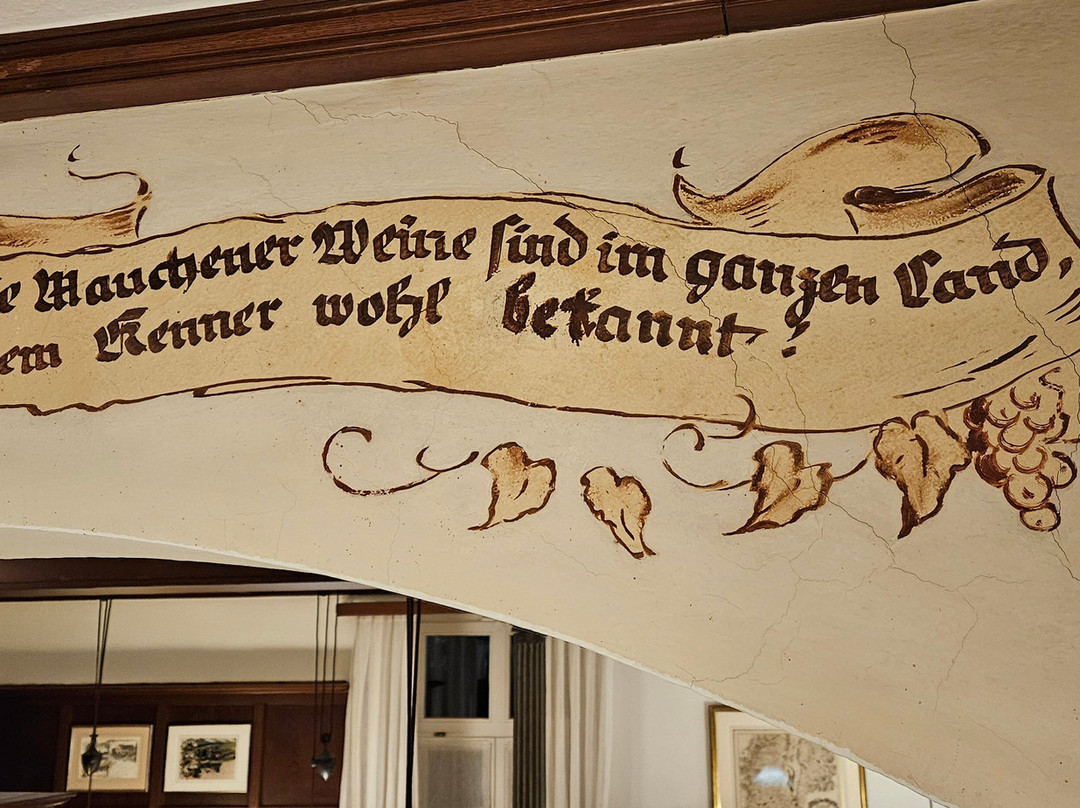 e Mauchener Weine sind im ganzen Land,
em Kenner wohl bekannt!